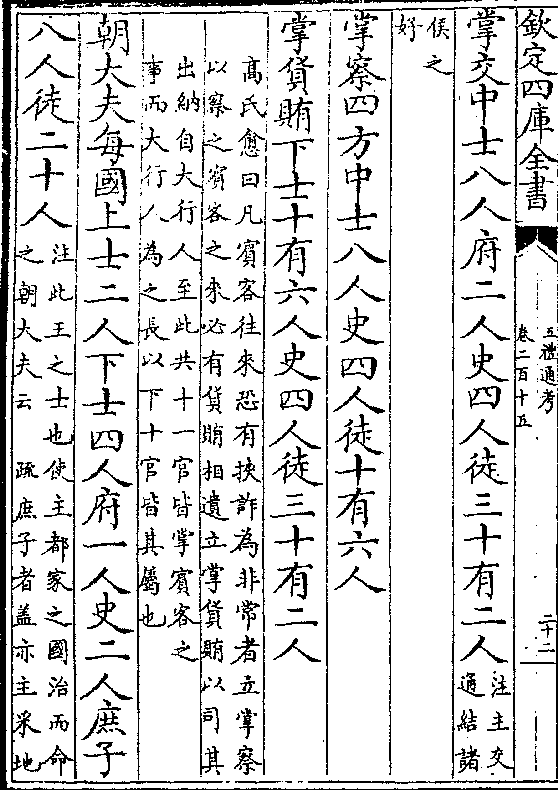 欽定四庫全書
五禮通考
卷二百十五
二十二
掌交中士八人府二人史四人徒三十有二人注主交通結諸
侯之好
掌察四方中士八人史四人徒十有六人
掌貨賄下士十有六人史四人徒三十有二人
髙氏愈曰凡賓客往來恐有挾詐為非常者立掌察
以察之賓客之來必有貨賄相遺立掌貨賄以司其
出納自大行人至此共十一官皆掌賓客之
事而大行人為之長以下十官皆其屬也
朝大夫每國上士二人下士四人府一人史二人庶子
八人徒二十人注此王之士也使主都家之國治而命之朝大夫云 疏庶子者盖亦主采地